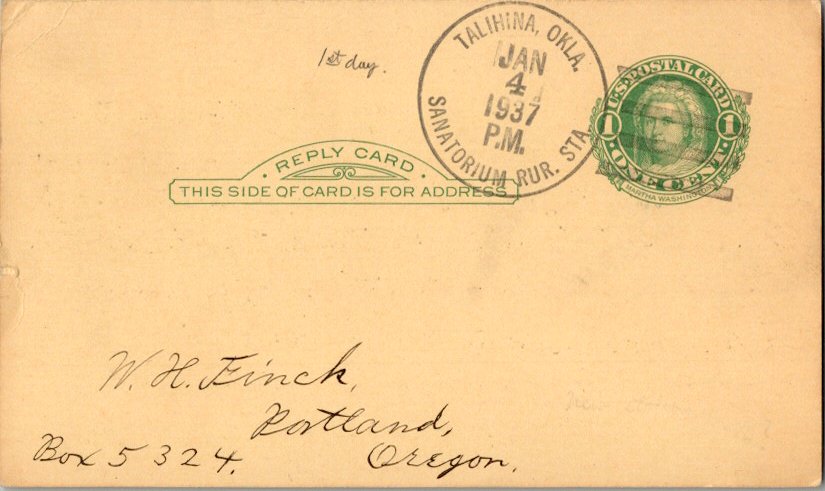 1st day.
TALIHINA, OKLA.
JAN
4
1937
P.M.
SANATORIUM RUR. STA.
U.S. POSTAL CARD
1 1
ONE CENT
MARTHA WASHINGTON
REPLY CARD
THIS SIDE OF CARD IS FOR ADDRESS
W. H. Finck,
Portland,
Box 5324. Oregon.